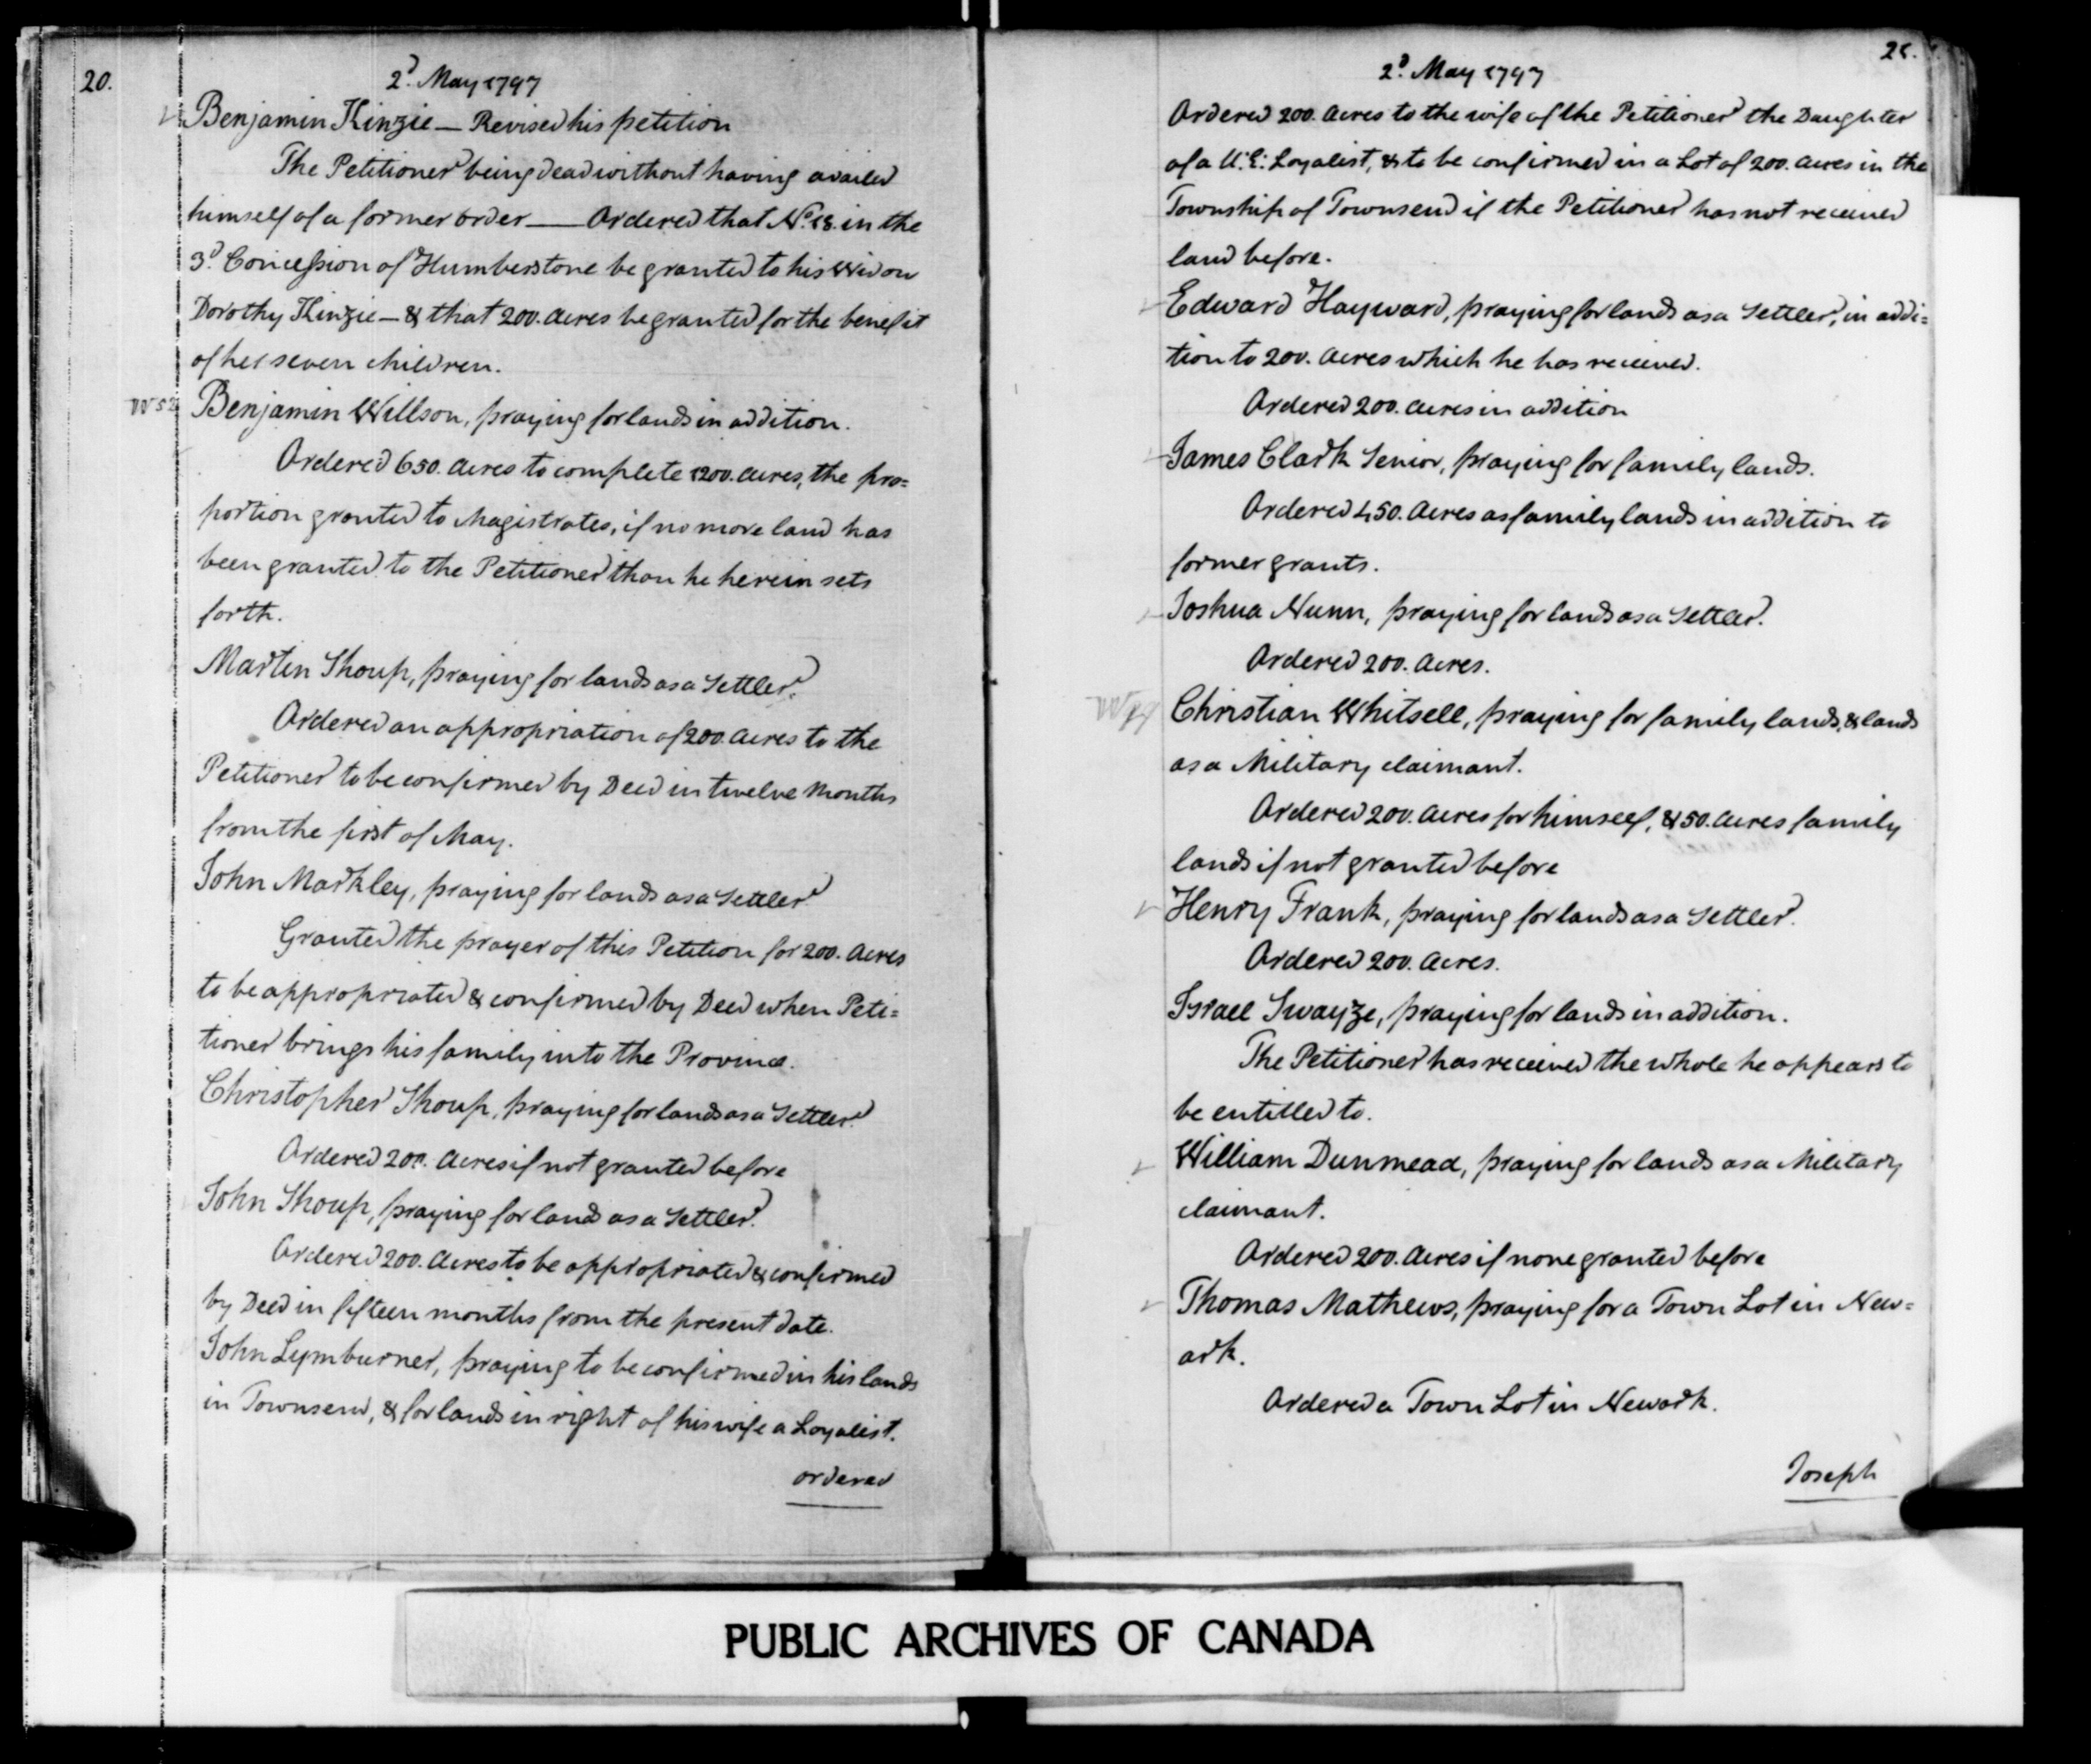 20.
2d. May 1797
Benjamin Kinzie — Revised his petition
The Petitioner being dead without having availed
himself of a former order — Ordered that No. 18. in the
3d. Concession of Humberstone be granted to his Widow
Dorothy Kinzie — & that 200. Acres be granted for the benefit
of her seven children.
Benjamin Willson, praying for lands in addition.
Ordered 650. Acres to complete 1200. Acres, the pro=
portion granted to Magistrates, if no more land has
been granted to the Petitioner than he herein sets
forth.
Martin Shoup, praying for lands as a Settler.
Ordered an appropriation of 200 Acres to the
Petitioner to be confirmed by Deed in twelve Months
from the first of May.
John Markley, praying for lands as a Settler
Granted the prayer of this Petition for 200. Acres
to be appropriated & confirmed by Deed when Peti=
tioner brings his family into the Province.
Christopher Shoup, praying for lands as a Settler.
Ordered 200. Acres if not granted before
John Shoup, praying for lands as a Settler.
Ordered 200. Acres to be appropriated & confirmed
by Deed in fifteen months from the present date.
John Lymburner, praying to be confirmed in his lands
in Townsend, & for lands in right of his wife a Loyalist.
ordered
2d. May 1797
Ordered 200. Acres to the wife of the Petitioner the Daughter
of a U.E. Loyalist, & to be confirmed in a Lot of 200. Acres in the
Township of Townsend if the Petitioner has not received
land before.
Edward Hayward, praying for lands as a Settler, in addi=
tion to 200. Acres which he has received.
Ordered 200. Acres in addition
James Clark Senior, praying for family lands.
Ordered 450. Acres as family lands in addition to
former grants.
Joshua Nunn, praying for lands as a Settler.
Ordered 200. Acres.
Christian Whitsell, praying for family lands, & lands
as a Military claimant.
Ordered 200. Acres for himself, & 50. Acres family
lands if not granted before
Henry Frank, praying for lands as a Settler.
Ordered 200. Acres.
Israel Swayze, praying for lands in addition.
The Petitioner has received the whole he appears to
be entitled to.
William Dunmead, praying for lands as a Military
claimant.
Ordered 200. Acres if none granted before
Thomas Mathews, praying for a Town Lot in New=
ark.
Ordered a Town Lot in Newark.
Joseph
PUBLIC ARCHIVES OF CANADA